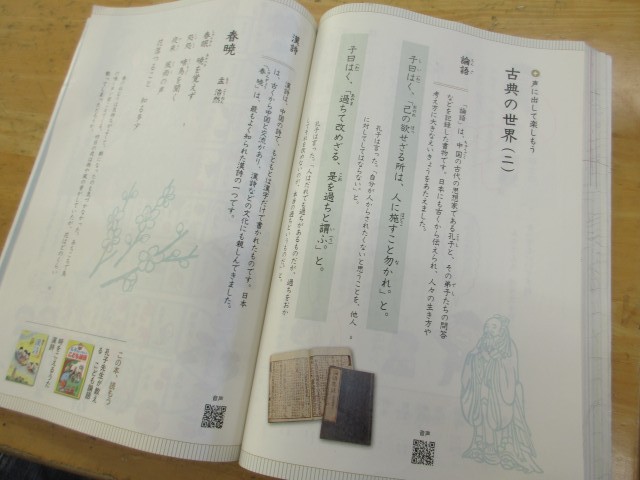 声に出して楽しもう
古典の世界(二)
論語
「論語」は、中国の古代の思想家である孔子と、その弟子たちの問答
などを記録した書物です。日本にも古くから伝えられ、人々の生き方や
考え方に大きなえいきょうをあたえました。
子曰はく、「己の欲せざる所は、人に施すこと勿かれ。」と。
孔子は言った、「自分が人からされたくないと思うことを、他人
に対してしてはならない。」と。
子曰はく、「過ちて改めざる、是を過ちと謂ふ。」と。
孔子は言った、「人はだれでも過ちがあるものだが、過ちをおか
音声
漢詩
漢詩は、中国の詩で、もともとは漢字だけで書かれたものです。日本
は、古くから中国と交流があり、漢詩などの文化にも親しんできました。
「春暁」は、最もよく知られた漢詩の一つです。
春暁
孟浩然
春眠 暁を覚えず
処処 啼鳥を聞く
夜来 風雨の声
花落つること 知る多少
音声
この本、読もう
孔子先生が教える こども論語